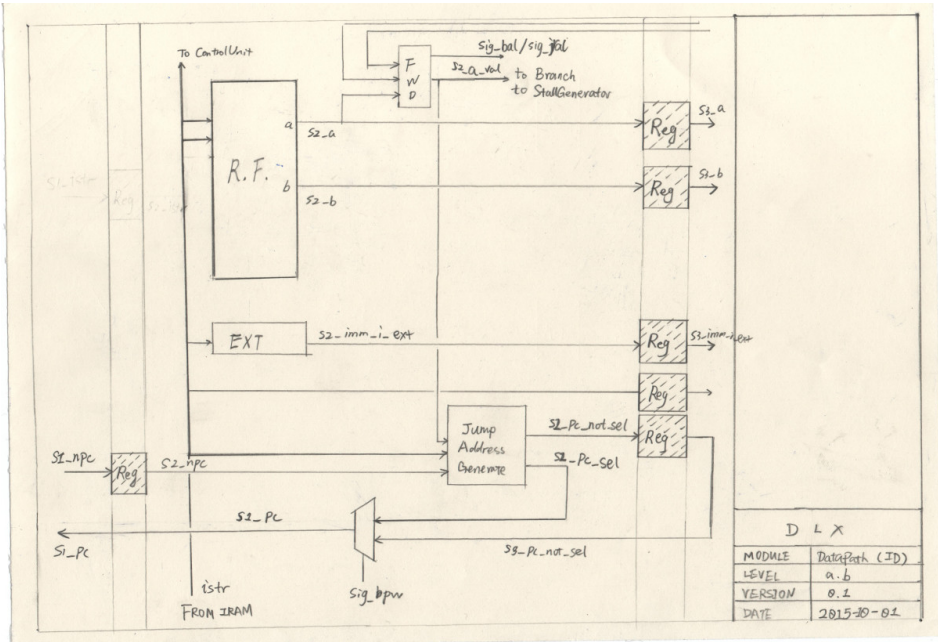 To ControlUnit
F
W
D
Sig_bal/sig_jral
S2_a_val
to Branch
to StallGenerator
R.F.
a
b
S2_a
S2_b
Reg
S3_a
Reg
S3_b
S1_istr
Reg
EXT
S2_imm_i_ext
Reg
S3_imm_i_ext
Reg
Jump
Address
Generate
S2_Pc_not_sel
Reg
S2_Pc_sel
S1_npc
Reg
S2_npc
S1_Pc
S1_pc
S3_Pc_not_sel
sig_bpw
istr
FROM IRAM
DLX
MODULE DataPath (ID)
LEVEL a.b
VERSION 0.1
DATE 2015-10-01